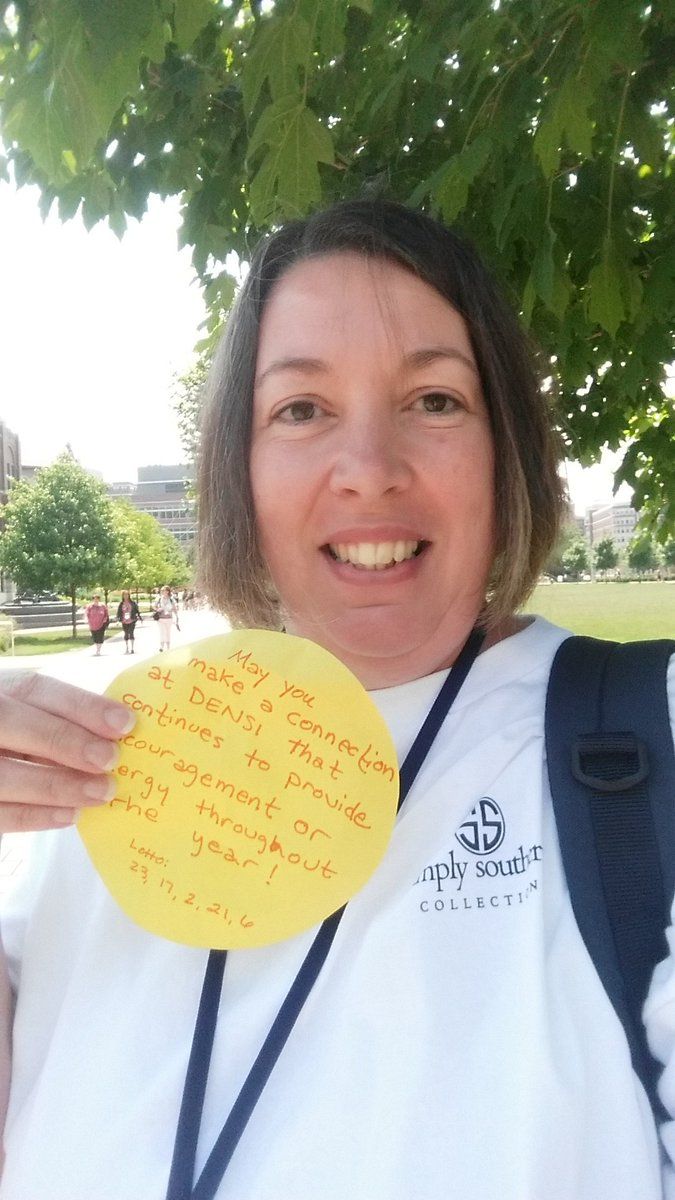 May you
make a connection
at DENSI that
continues to provide
couragement or
ergy throughout
the year!
Lotto:
23, 17, 2, 21, 6
SS
mply souther
COLLECTION